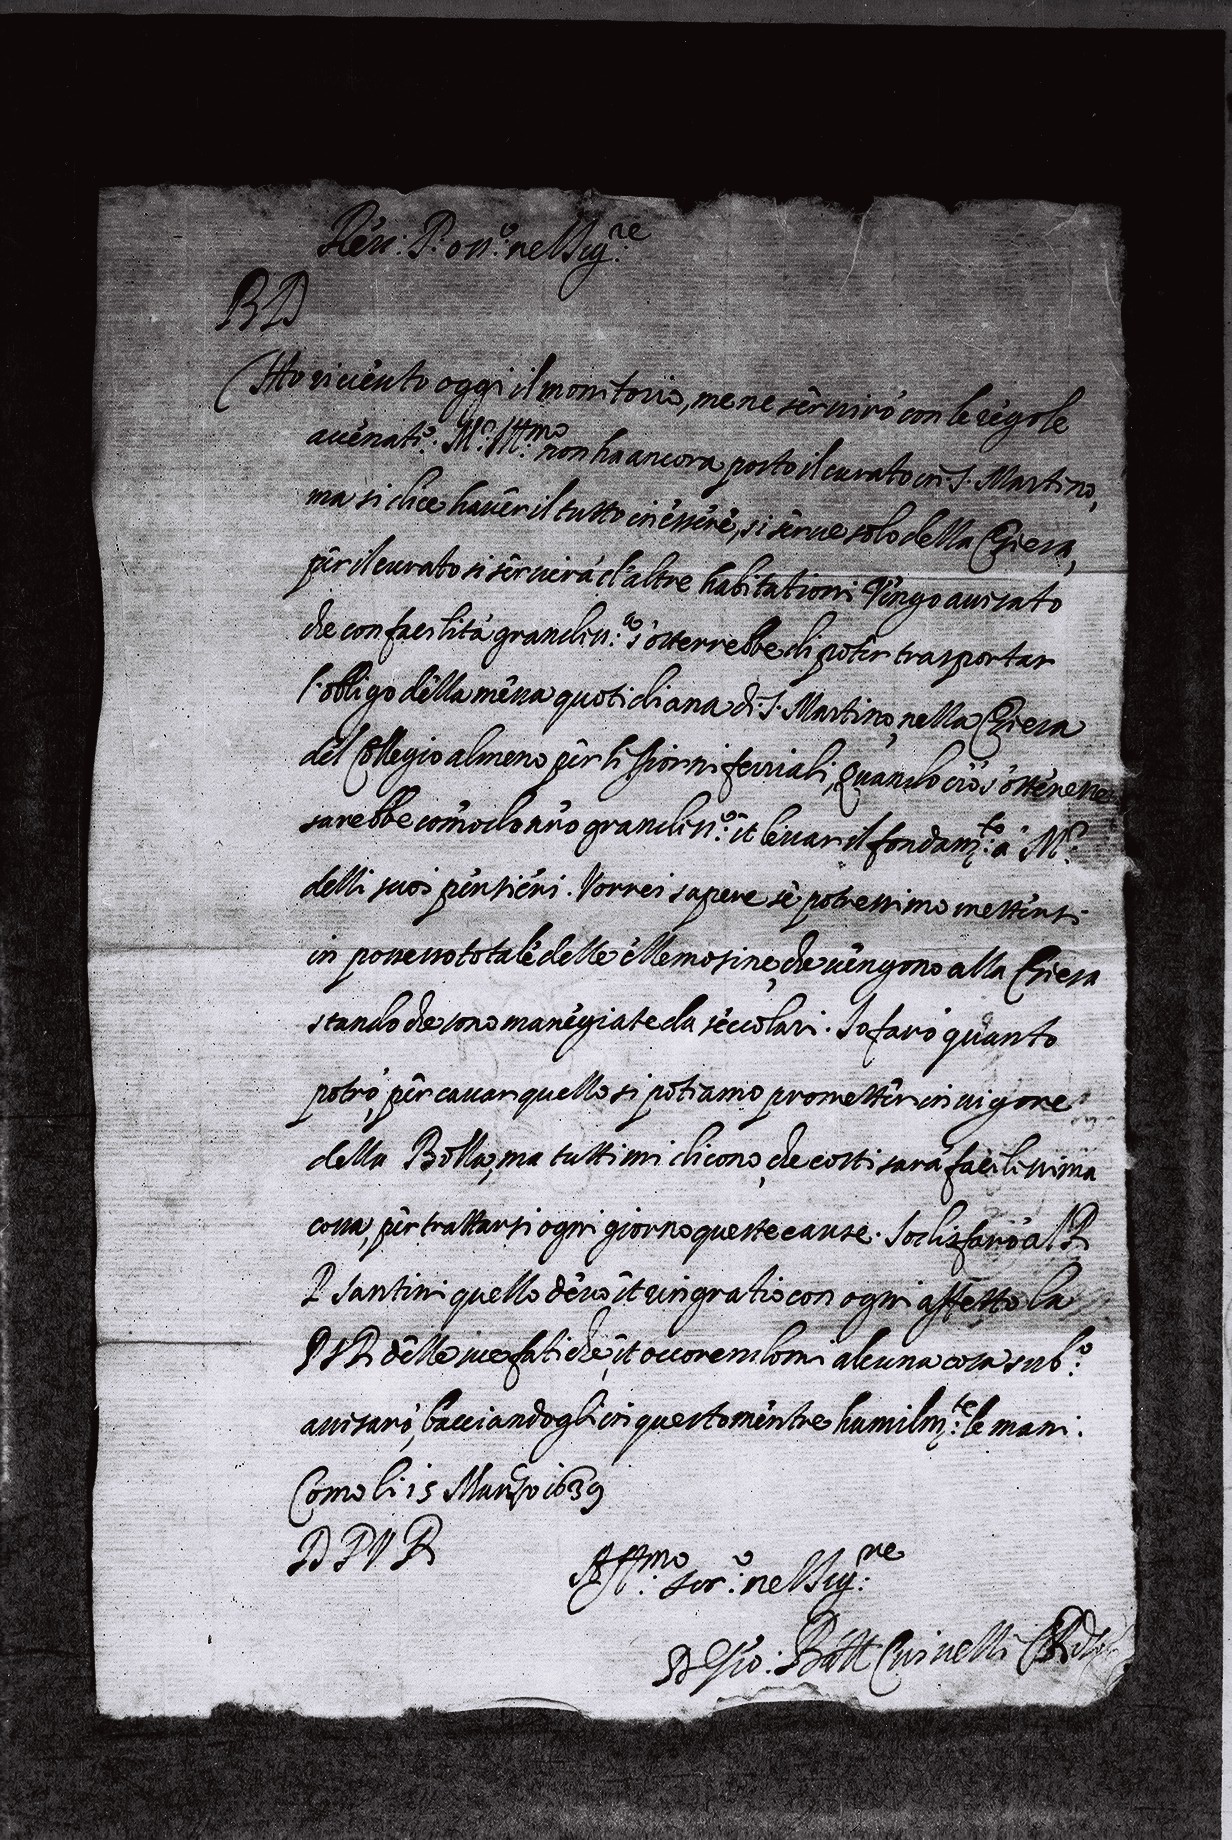 Rev: P. oss.º nel Sig.re
P D
Ho ricevuto oggi il monitorio, mene servirò con le regole
avenati. M.r Ill.mo non ha ancora posto il curato in S. Martino,
ma si dice haver il tutto in essere, si serve solo della Chiesa,
per il curato si servirà d'altre habitationi Vengo avisato
che con facilità grandiss.a s'otterrebbe di poter trasportar
l'obbligo della messa quotidiana di S. Martino, nella Chiesa
del Collegio almeno per li giorni feriali, Quando ciò s'ottenesse
sarebbe comodo nr̃o grandiss.º et levar il fondam.to a M.r
delli suoi pensieri. Vorrei sapere se potressimo mettersi
in possesso totale delle ellemosine, che vengono alla Chiesa
stando che sono manegiate da seccolari. Io farò quanto
potrò, per cavar quello si potiamo prometter in vigore
della Bolla, ma tutti mi dicono, che costi sarà facilissima
cosa, per trattarsi ogni giorno queste cause. Sodisfarò al P
P Santini quello devo et ringratio con ogni affetto la
P S R delle sue fatiche, et occorendomi alcuna cosa sub.º
avisarò, bacciandogli in questo mentre humilm.te le mani.
Como li 15 Marzo 1639
D P V R
Aff.mo ser.º nel Sig.re
D Gio: Batt